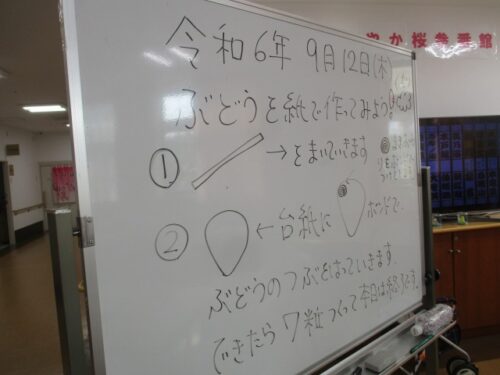 令和6年 9月12日(木)
ぶどうを紙で作ってみよう
① → をまいていきます
② ← 台紙に ボンドで、
ぶどうのつぶをはっていきます。
できたら 7粒 つくって 本日は終りです。
か桜参番館